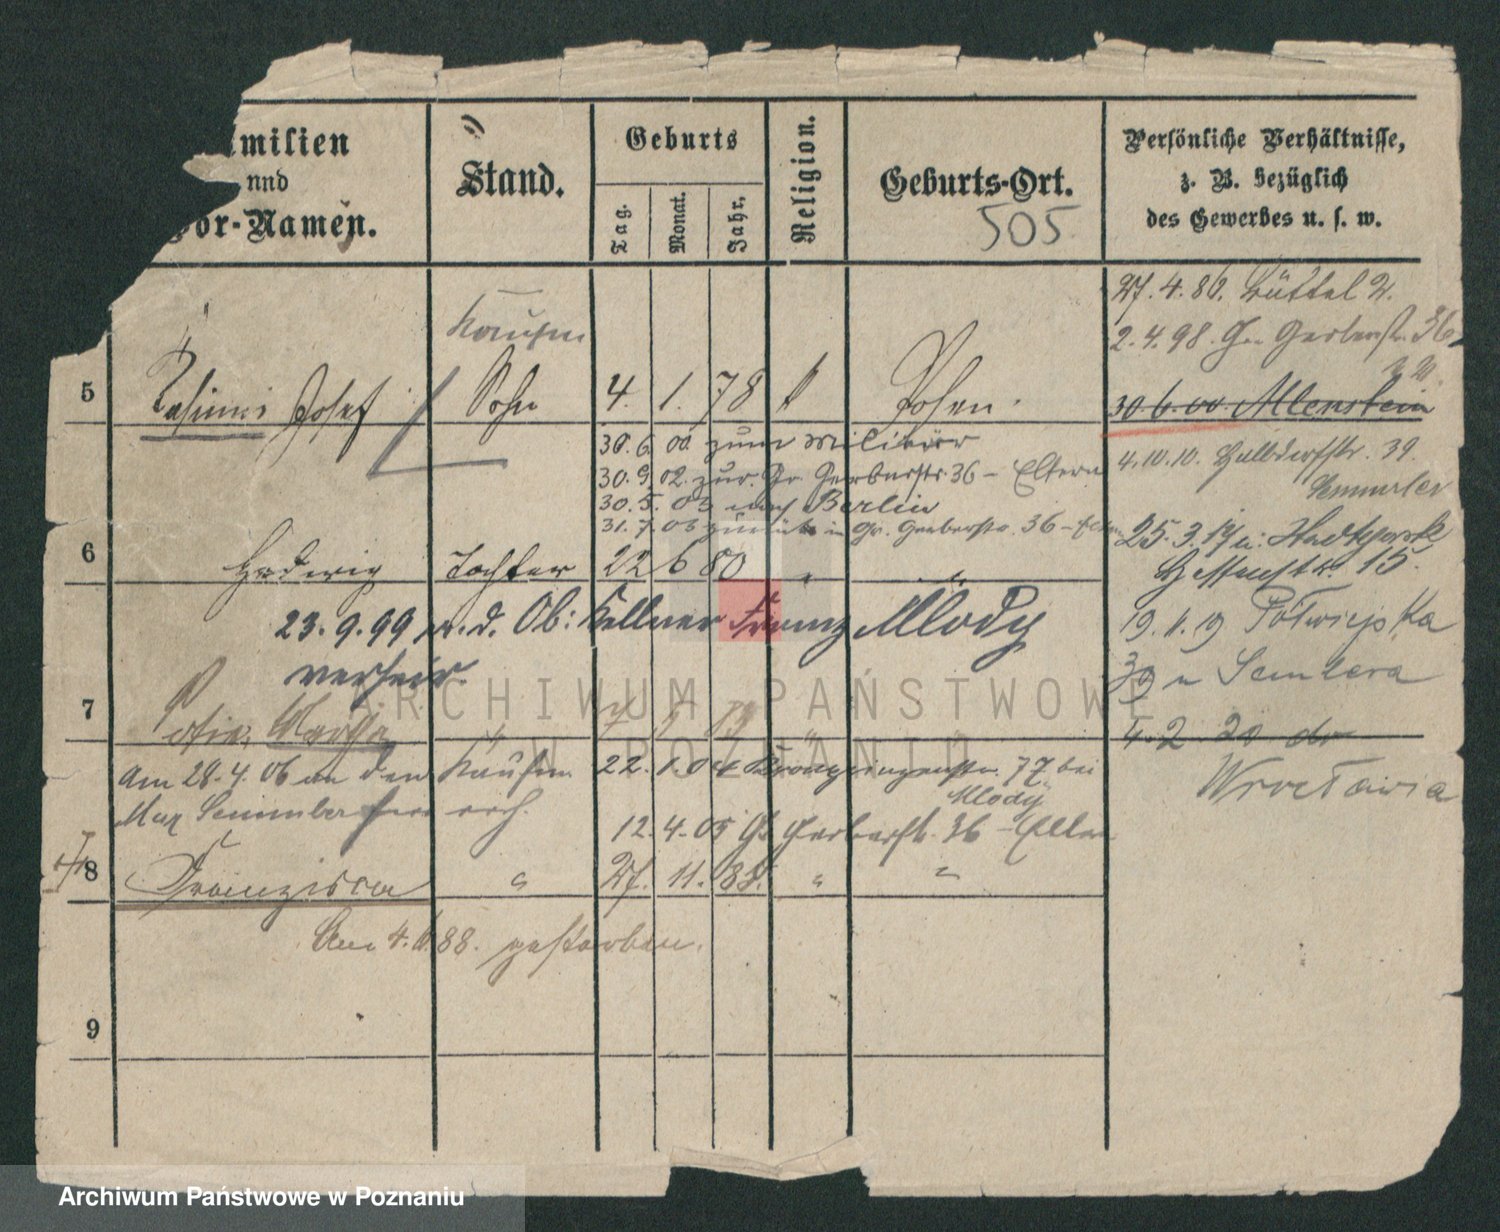 Familien
und
Vor-Namen.
Stand.
Geburts
Tag.
Monat.
Jahr.
Religion.
Geburts-Ort.
505
Persönliche Verhältnisse,
z. B. bezüglich
des Gewerbes u. s. w.
27. 4. 86. Büttel 2.
2. 4. 98. Gr. Gerberstr. 36
Kaufm
5 Kasimir Josef Sohn 4. 1. 78 k Posen.
30. 6. 00 Allenstein
30. 6. 00 zum Militär
30. 9. 02. zur. Gr. Gerberstr. 36 – Eltern
30. 5. 03 nach Berlin
31. 7. 03 zurück in Gr. Gerberstr. 36 –
4. 10. 10. Halbdorfstr. 39.
Semmler
6 Hedwig Tochter 22 6 80 " "
25. 3. 19
15.
23. 9. 99 m. d. Ob: Kellner Franz Mlody
verheir.
19. 11. 19 Półwiejska
39 u Semlera
7 Martha " 7 " "
4. 2. 20 do
Wrocławia
Am 28. 4. 06 an den Kaufm. 22. 1. 04 Kronprinzenstr. 77 bei
Mlody
Max Semmler
12. 4. 05 Gr. Gerberstr. 36 – Eltern
8 Franzisca " 27. 11. 85. " "
Am 4. 88. gestorben.
9
ARCHIWUM PAŃSTWOWE
W POZNANIU
Archiwum Państwowe w Poznaniu